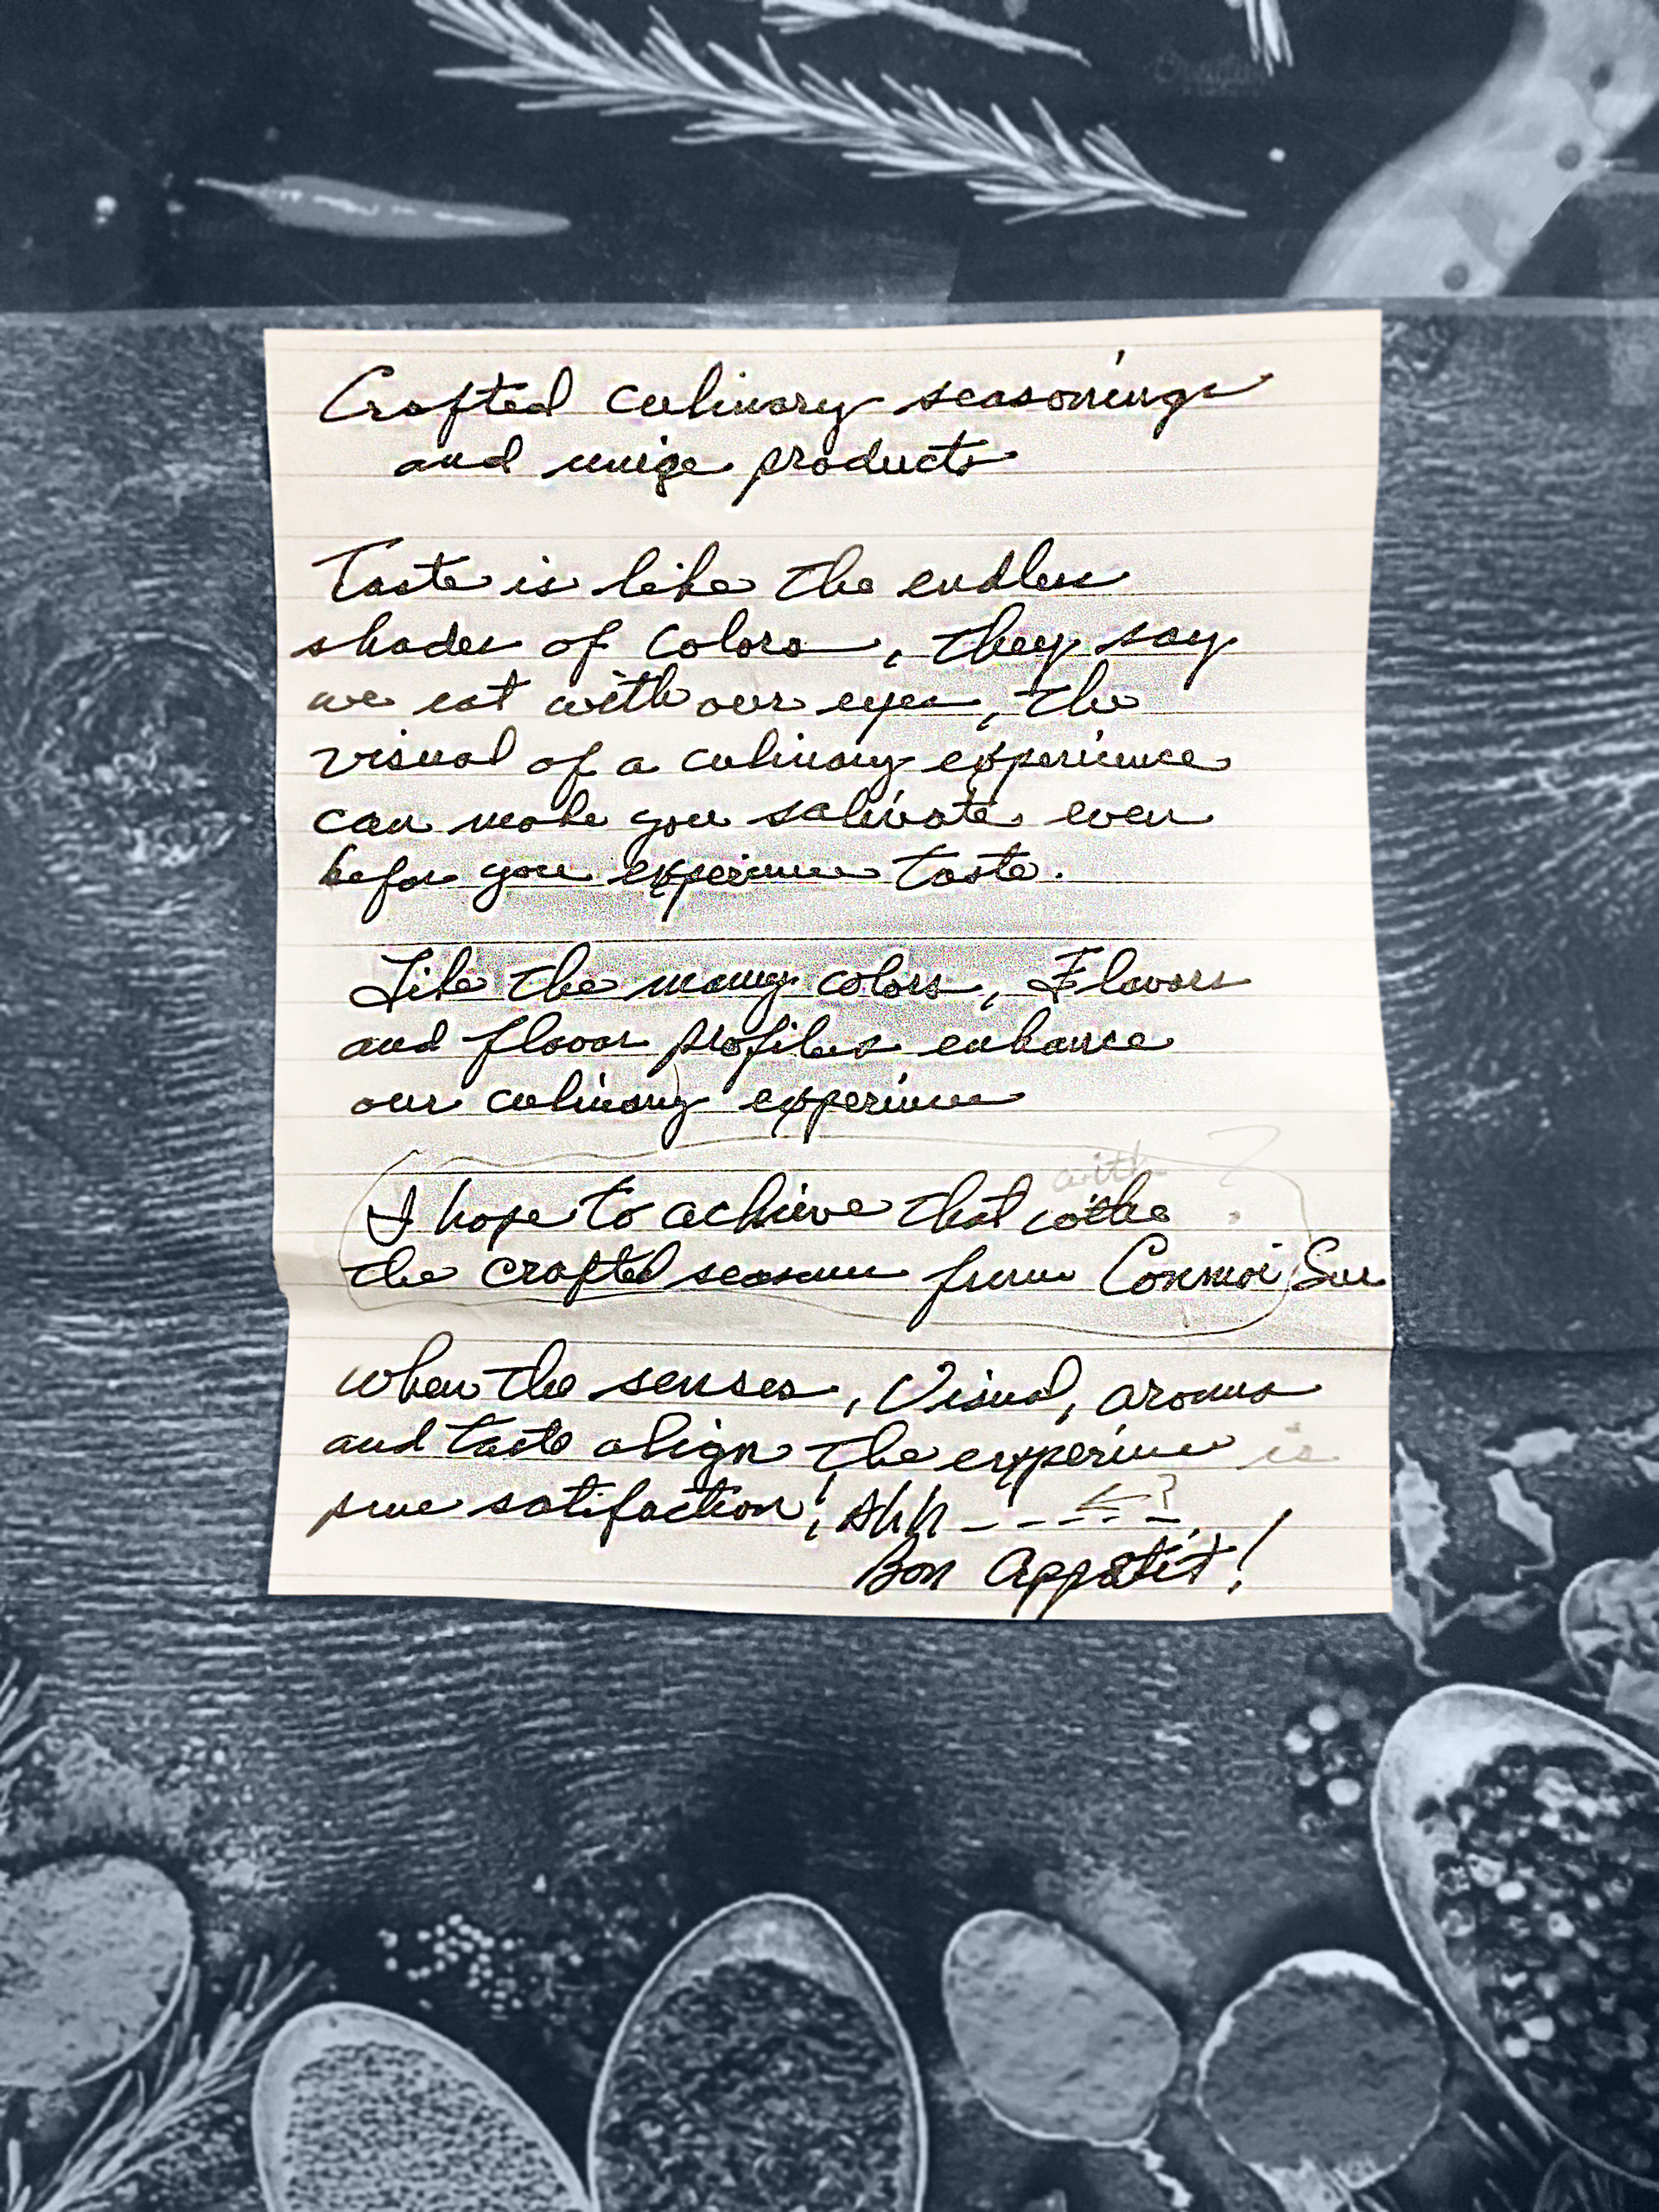 Crafted culinary seasonings
and uniqe products
Taste is like the endless
shades of colors, they say
we eat with our eyes, the
visual of a culinary experience
can make you salivate even
before you experience taste.
Like the many colors, Flavors
and flavor profiles enhance
our culinary experience
with ?
I hope to achieve that withe
the crafted from Connoi Sur
when the senses, Visual, aroma
and taste align the experience is
pure satifaction! Ahh - - - - -
←?
Bon Appétit!